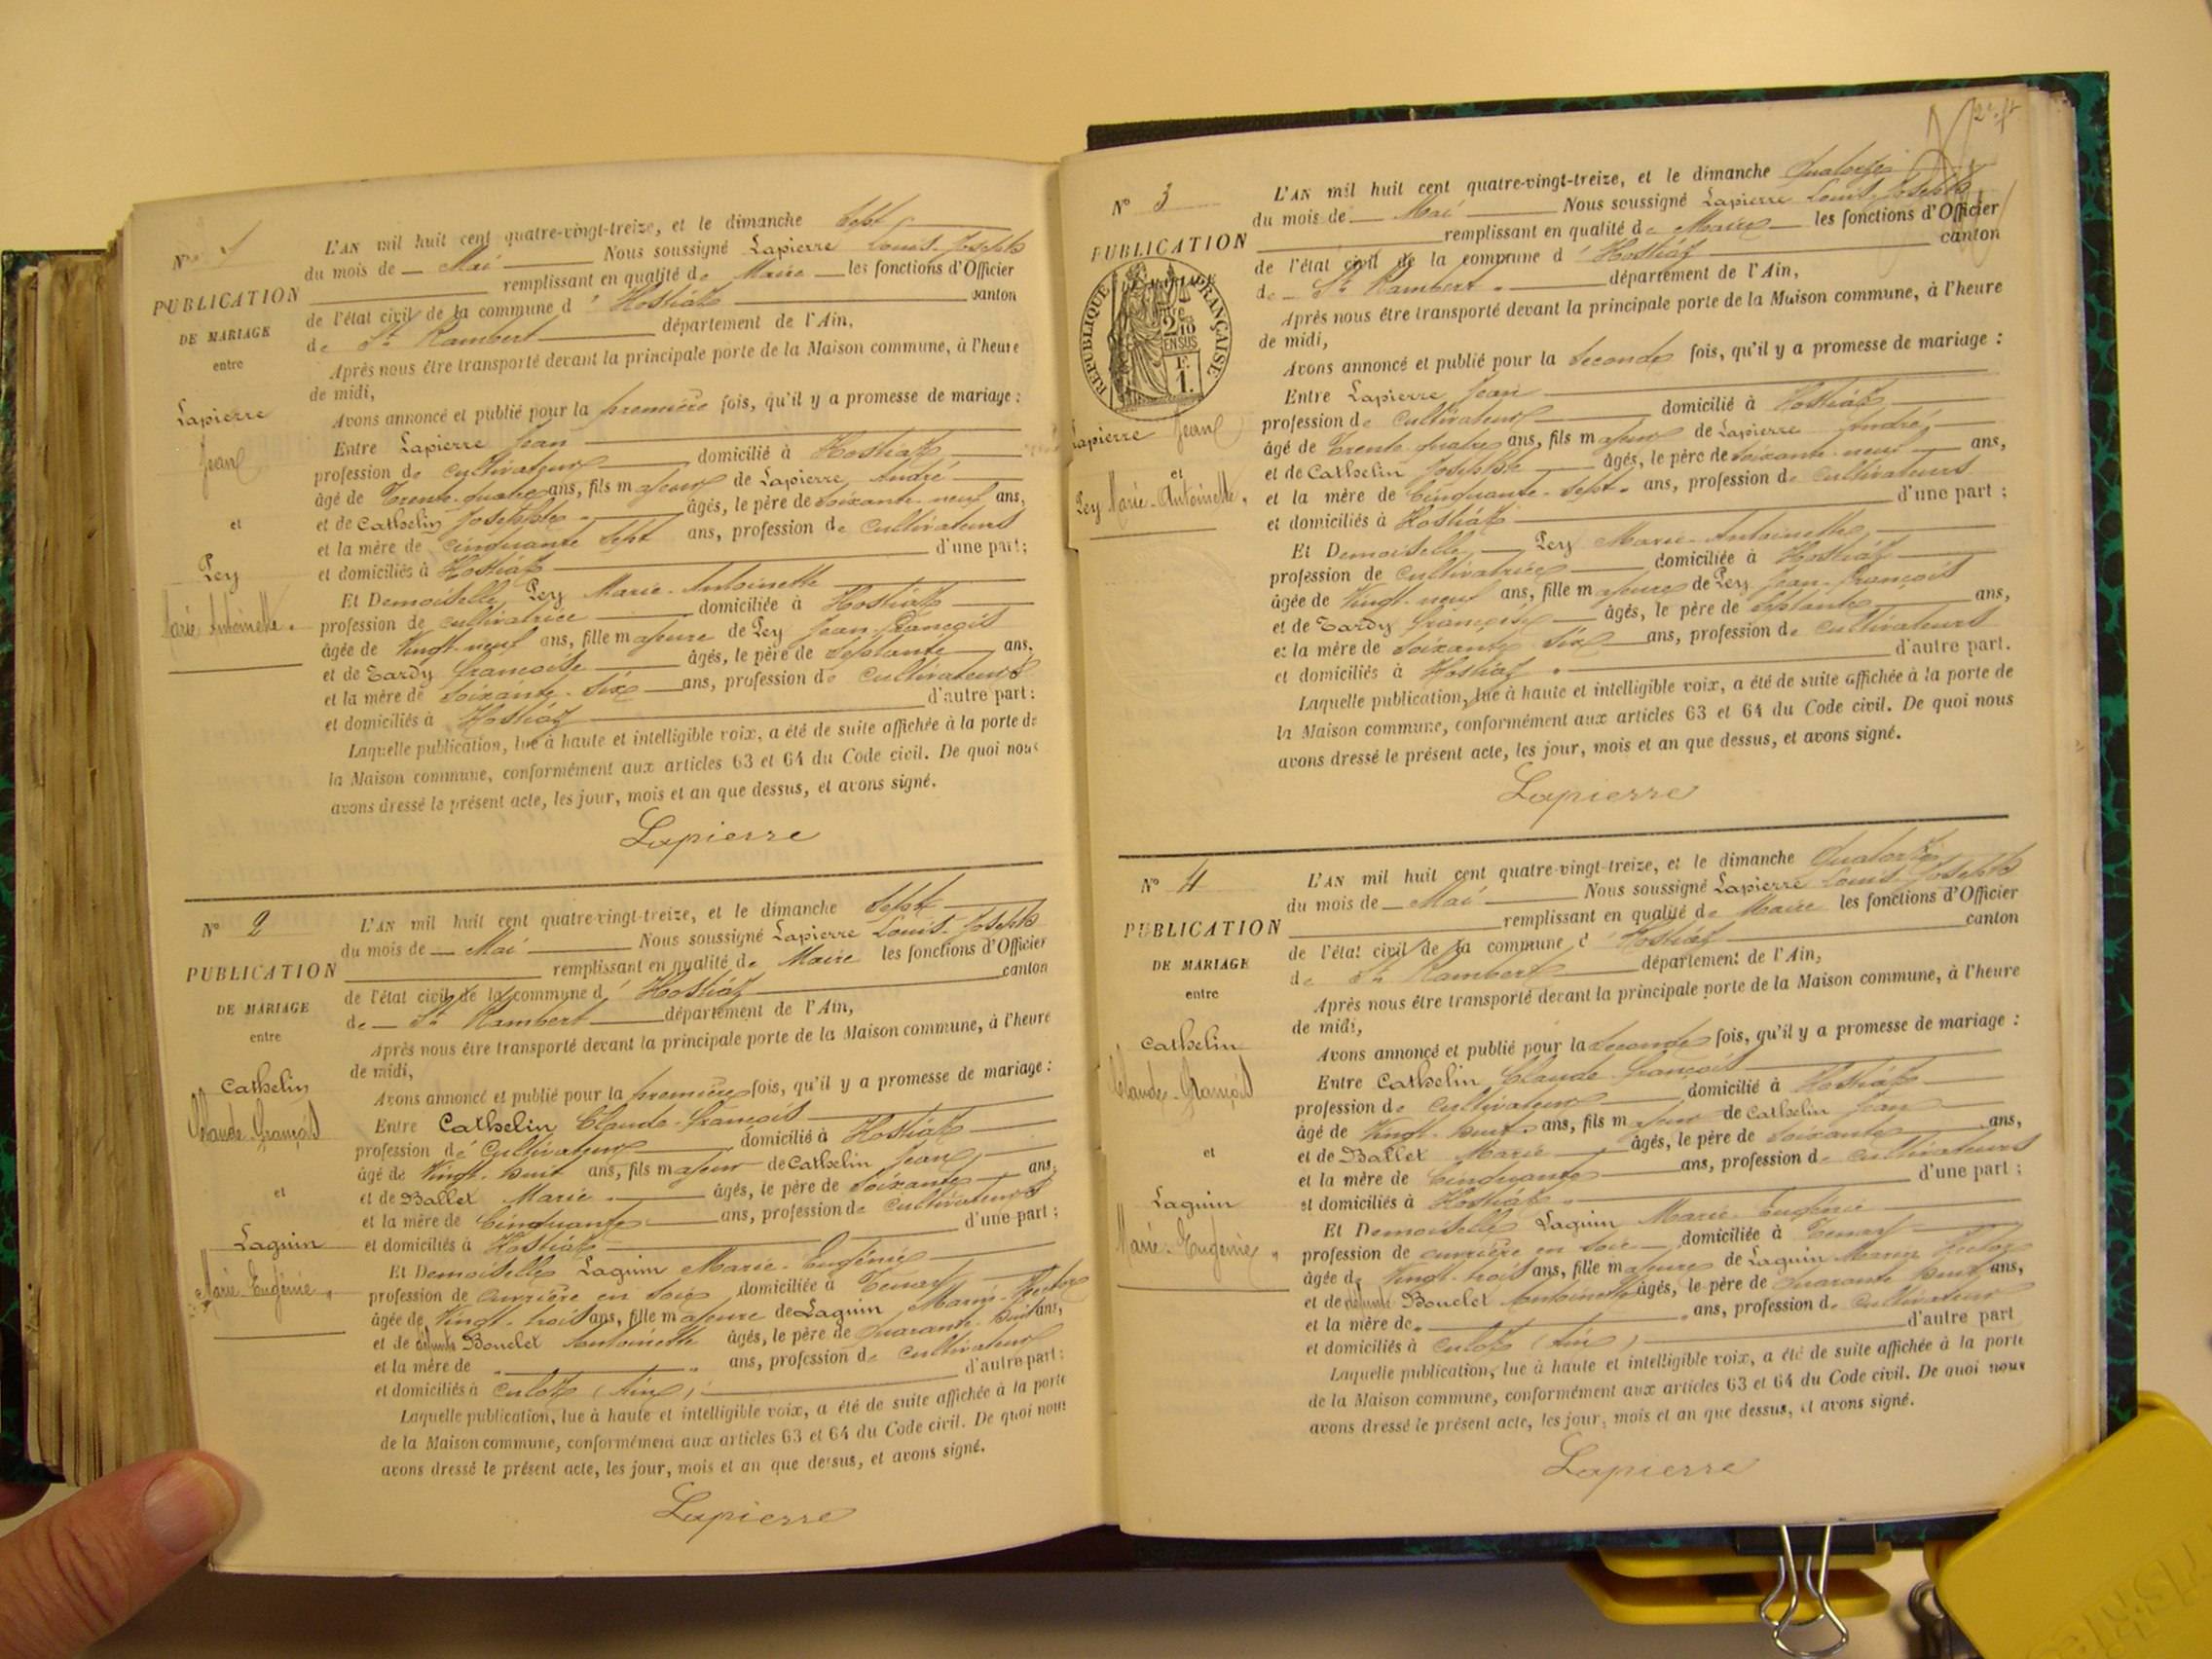 N° 1
PUBLICATION
DE MARIAGE
entre
Lapierre
Jean
et
Pey
Marie Antoinette.
L'AN mil huit cent quatre-vingt-treize, et le dimanche Sept
du mois de Mai Nous soussigné Lapierre Louis-Joseph
remplissant en qualité de Maire les fonctions d'Officier
de l'état civil de la commune d' Hostiaz canton
de St Rambert département de l'Ain,
Après nous être transporté devant la principale porte de la Maison commune, à l'heure
de midi,
Avons annoncé et publié pour la première fois, qu'il y a promesse de mariage :
Entre Lapierre Jean
profession de cultivateur domicilié à Hostiaz
âgé de Trente-quatre ans, fils majeur de Lapierre André
et de Cathelin Josephte âgés, le père de soixante-neuf ans,
et la mère de cinquante sept ans, profession de cultivateurs
et domiciliés à Hostiaz d'une part;
Et Demoiselle Pey Marie-Antoinette
profession de cultivatrice domiciliée à Hostiaz
âgée de Vingt-neuf ans, fille majeure de Pey Jean-François
et de Tardy françoise âgés, le père de septante ans,
et la mère de soixante-six ans, profession de cultivateurs
et domiciliés à Hostiaz d'autre part:
Laquelle publication, lue à haute et intelligible voix, a été de suite affichée à la porte de
la Maison commune, conformément aux articles 63 et 64 du Code civil. De quoi nous
avons dressé le présent acte, les jour, mois et an que dessus, et avons signé.
Lapierre
N° 2
PUBLICATION
DE MARIAGE
entre
Cathelin
Claude-François
et
Laguin
Marie Eugénie.
L'AN mil huit cent quatre-vingt-treize, et le dimanche Sept
du mois de Mai Nous soussigné Lapierre Louis-Joseph
remplissant en qualité de Maire les fonctions d'Officier
de l'état civil de la commune d' Hostiaz canton
de St Rambert département de l'Ain,
Après nous être transporté devant la principale porte de la Maison commune, à l'heure
de midi,
Avons annoncé et publié pour la première fois, qu'il y a promesse de mariage :
Entre Cathelin Claude-François
profession de Cultivateur domicilié à Hostiaz
âgé de Vingt-huit ans, fils majeur de Cathelin Jean
et de Ballet Marie âgés, le père de soixante ans,
et la mère de Cinquante ans, profession de cultivateurs
et domiciliés à Hostiaz d'une part ;
Et Demoiselle Laguin Marie-Eugénie
profession de ouvrière en soie domiciliée à Tenay
âgée de Vingt-trois ans, fille majeure de Laguin Marin-Hector
et de défunte Bouclet Antoinette âgés, le père de Quarante-huit ans,
et la mère de ans, profession de cultivateur
et domiciliés à Culoz (Ain) d'autre part:
Laquelle publication, lue à haute et intelligible voix, a été de suite affichée à la porte
de la Maison commune, conformément aux articles 63 et 64 du Code civil. De quoi nous
avons dressé le présent acte, les jour, mois et an que dessus, et avons signé.
Lapierre
N° 3
PUBLICATION
RÉPUBLIQUE FRANÇAISE
2/10
EN SUS
F.
1.
Lapierre Jean
et
Pey Marie-Antoinette.
L'AN mil huit cent quatre-vingt-treize, et le dimanche Quatorze
du mois de Mai Nous soussigné Lapierre Louis-Joseph
remplissant en qualité de Maire les fonctions d'Officier
de l'état civil de la commune d' Hostiaz canton
de St Rambert département de l'Ain,
Après nous être transporté devant la principale porte de la Maison commune, à l'heure
de midi,
Avons annoncé et publié pour la seconde fois, qu'il y a promesse de mariage :
Entre Lapierre Jean
profession de Cultivateur domicilié à Hostiaz
âgé de Trente-quatre ans, fils majeur de Lapierre André,
et de Cathelin Josephte âgés, le père de soixante-neuf ans,
et la mère de Cinquante-sept ans, profession de cultivateurs
et domiciliés à Hostiaz d'une part ;
Et Demoiselle Pey Marie-Antoinette
profession de cultivatrice domiciliée à Hostiaz
âgée de Vingt-neuf ans, fille majeure de Pey Jean-François
et de Tardy françoise âgés, le père de septante ans,
et la mère de soixante six ans, profession de cultivateurs
et domiciliés à Hostiaz d'autre part.
Laquelle publication, lue à haute et intelligible voix, a été de suite affichée à la porte de
la Maison commune, conformément aux articles 63 et 64 du Code civil. De quoi nous
avons dressé le présent acte, les jour, mois et an que dessus, et avons signé.
Lapierre
N° 4
PUBLICATION
DE MARIAGE
entre
Cathelin
Claude-François
et
Laguin
Marie-Eugénie.
L'AN mil huit cent quatre-vingt-treize, et le dimanche Quatorze
du mois de Mai Nous soussigné Lapierre Louis-Joseph
remplissant en qualité de Maire les fonctions d'Officier
de l'état civil de la commune d' Hostiaz canton
de St Rambert département de l'Ain,
Après nous être transporté devant la principale porte de la Maison commune, à l'heure
de midi,
Avons annoncé et publié pour la seconde fois, qu'il y a promesse de mariage :
Entre Cathelin Claude-François
profession de Cultivateur domicilié à Hostiaz
âgé de Vingt-huit ans, fils majeur de Cathelin Jean
et de Ballet Marie âgés, le père de soixante ans,
et la mère de Cinquante ans, profession de cultivateurs
et domiciliés à Hostiaz d'une part ;
Et Demoiselle Laguin Marie-Eugénie
profession de ouvrière en soie domiciliée à Tenay
âgée de Vingt-trois ans, fille majeure de Laguin Marin Hector
et de défunte Bouclet Antoinette âgés, le père de Quarante huit ans,
et la mère de ans, profession de cultivateur
et domiciliés à Culoz (Ain) d'autre part
Laquelle publication, lue à haute et intelligible voix, a été de suite affichée à la porte
de la Maison commune, conformément aux articles 63 et 64 du Code civil. De quoi nous
avons dressé le présent acte, les jour, mois et an que dessus, et avons signé.
Lapierre